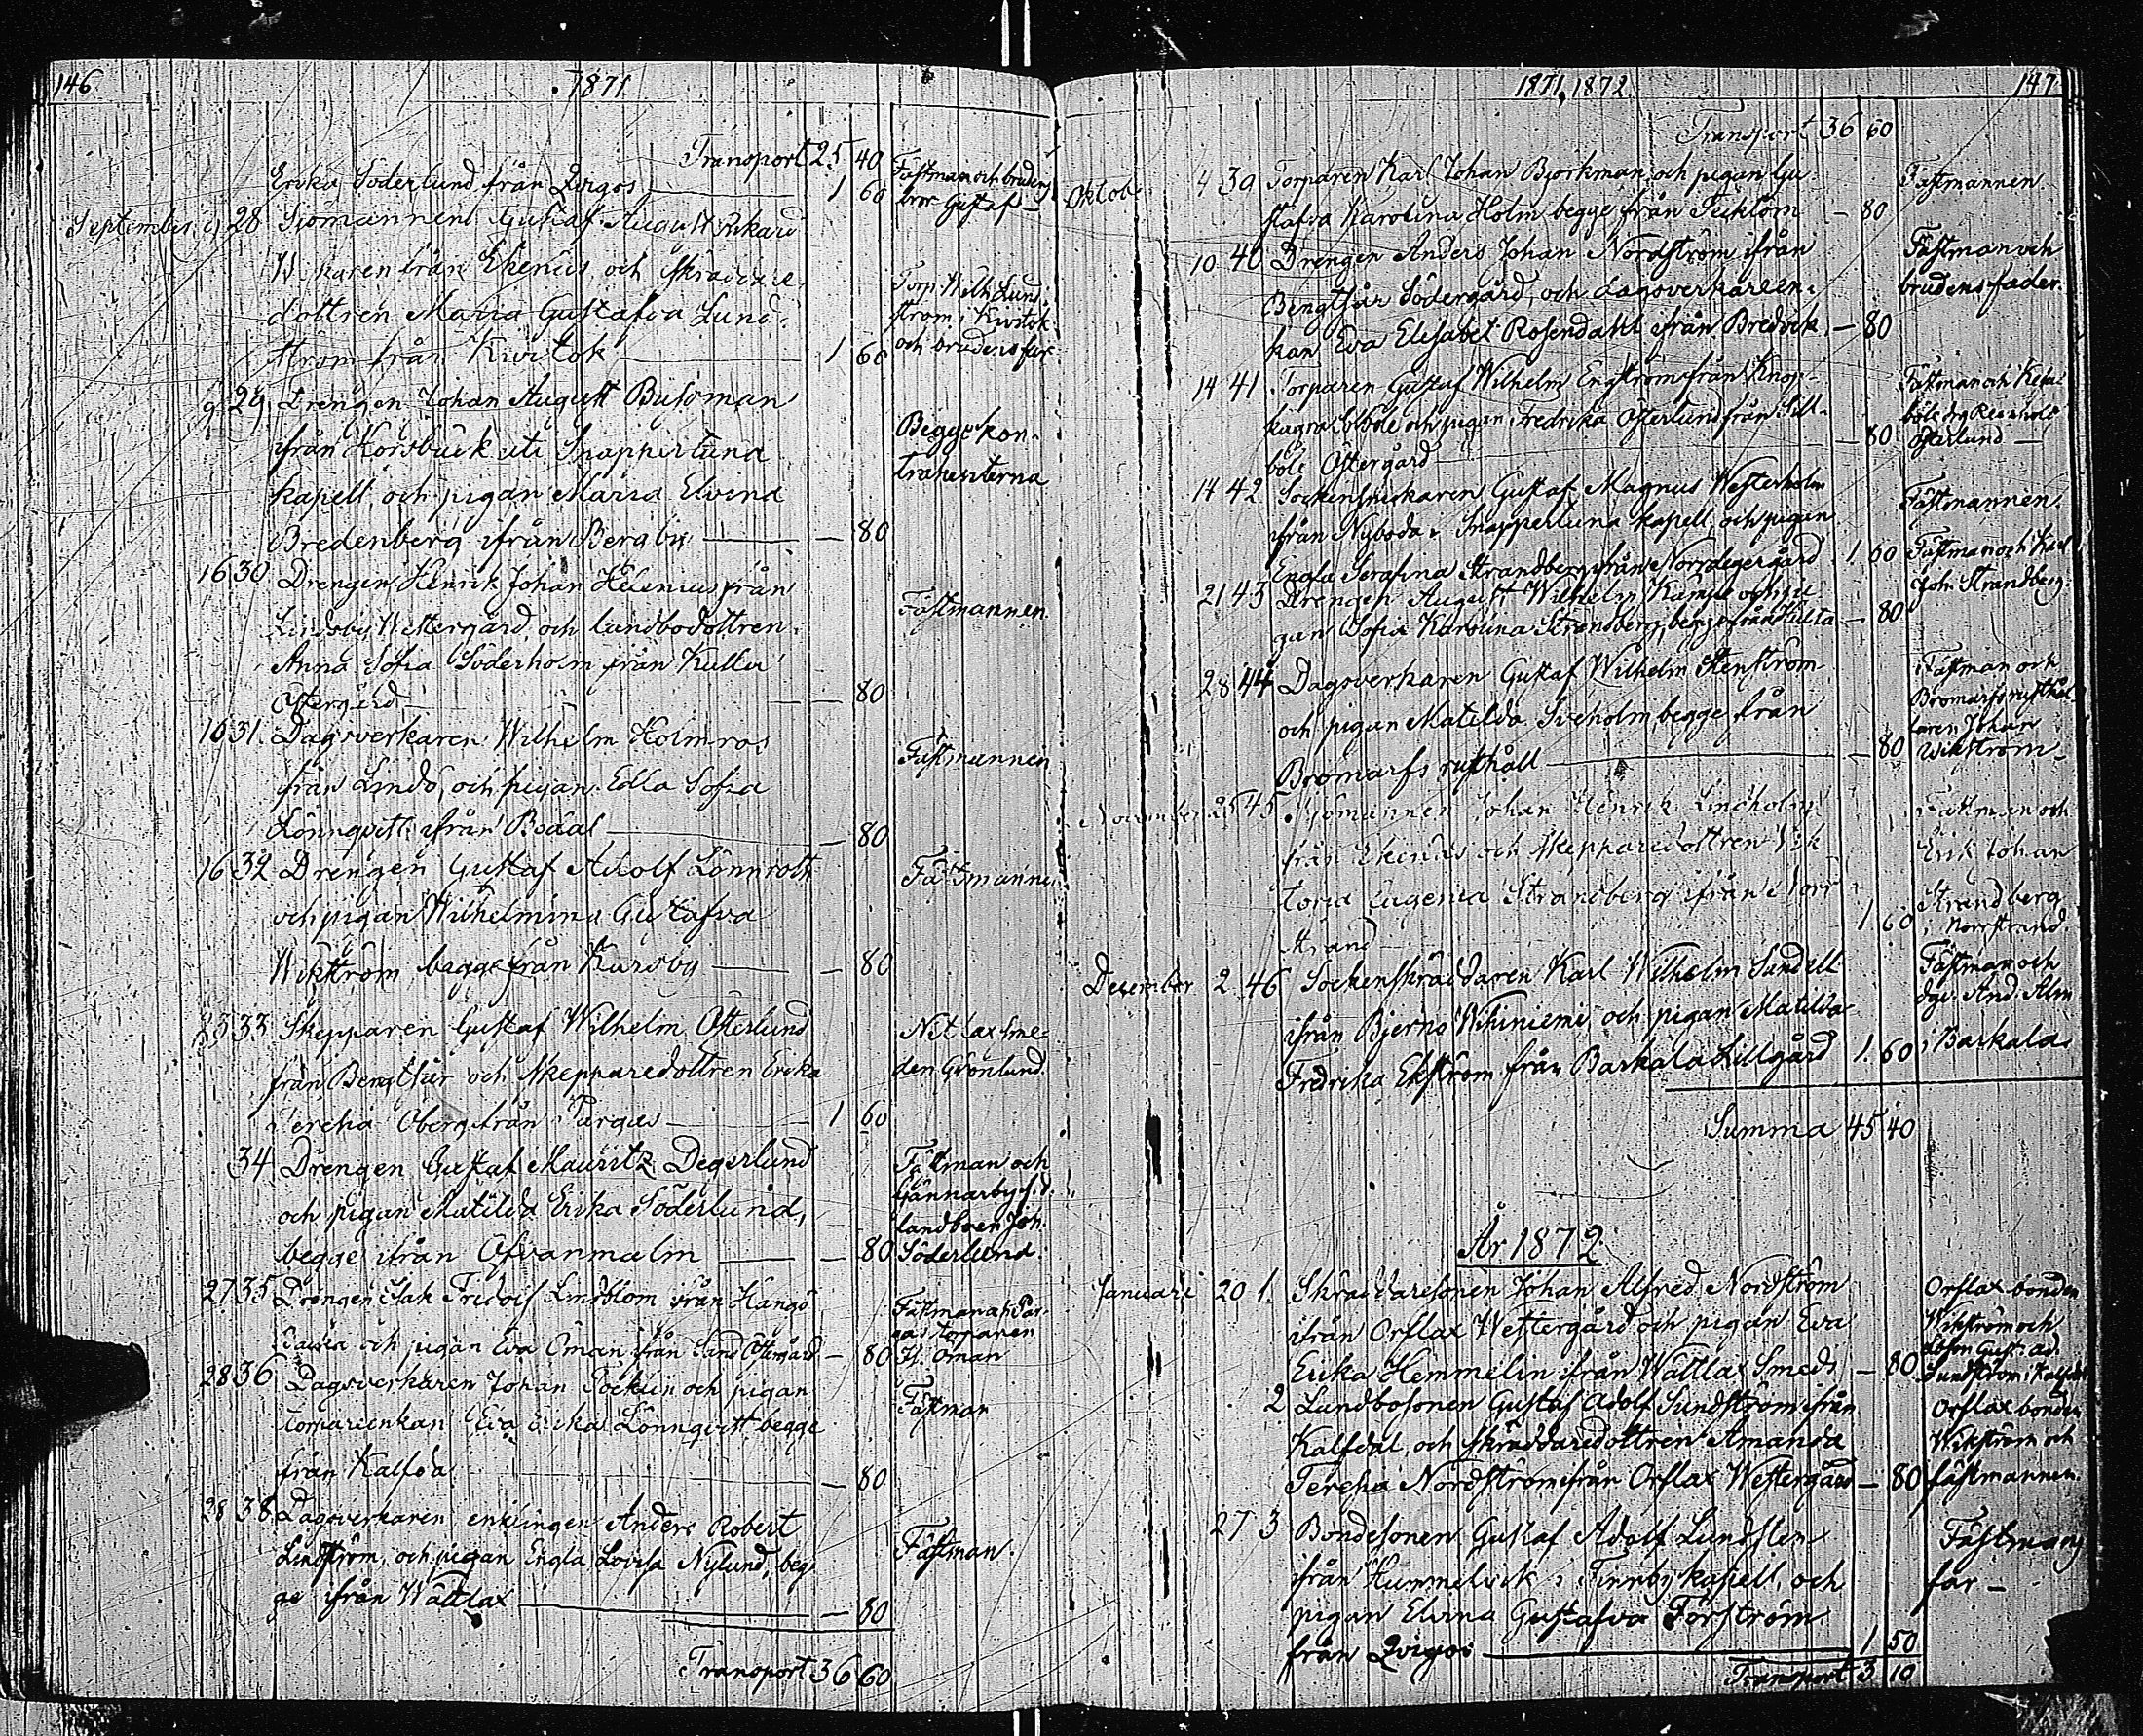 146
1871
Transport 25 40
Erika Söderlund från Qvigos — 1 60
Fästman och brudens
bror Gustaf —
September 9 28 Sjömannen Gustaf August Rikard
från Ekenäs, och
dottren Maria Gustafva Lund-
ström från Kivitok — 1 60
Torp. Wilh. Lund-
ström i Kivitok
och brudens far
9 29 Drengen Johan August Busoman
ifrån Horsbäck uti Snappertuna
kapell, och pigan Maria Elvina
Bredenberg ifrån Bergby — — 80
Begge kon-
trahenterna
16 30 Drengen Henrik Johan Helenius från
Lindsby Westergård, och lundbodottren
Anna Sofia Söderholm från Kulla
Östergård — — 80
Fästmannen
16 31 Dagsverkaren Wilhelm Holmros
från Lindö, och pigan Edla Sofia
Lönnqvist ifrån Bodal — — 80
Fästmannen
16 32 Drengen Gustaf Adolf Lönnroth
och pigan Wilhelmina Gustafva
Wikström, begge från Karsby — — 80
Fästmannen
23 33 Skepparen Gustaf Wilhelm Österlund
från Bengtsår och skepparedottren Erika
Teresia Öberg från Pargas — 1 60
Nitlax sme-
den Grönlund.
34 Drengen Gustaf Mauritz Degerlund
och pigan Matilda Erika Söderlund,
begge ifrån Öfvanmalm — — 80
Fästman och
Gännarby
landboen Joh.
Söderlund.
27 35 Drengen Isak Fridolf Lindblom från Hangö
och pigan Eva Öman från Sand Östergård — 80
Fästman och Par-
gas torparen
Öman
28 36 Dagsverkaren Johan Töcklin och pigan
Eva Erika Lönnqvist, begge
från Kalfdal — 80
Fästman
28 38 Dagsverkaren enklingen Anders Robert
Lindström, och pigan Engla Lovisa Nylund, beg-
ge ifrån Wättlax — — 80
Fästman.
Transport 36 60
1871, 1872
147
Transport 36 60
Oktob. 4 39 Torparen Karl Johan Björkman, och pigan Gu-
stafva Karolina Holm begge från Tecktom — 80
Fästmannen
10 40 Drengen Anders Johan Nordström ifrån
Bengtsår Södergård, och dagsverkaren-
kan Eva Elisabet Rosendahl ifrån Bredvik — 80
Fästman och
brudens fader.
14 41 Torparen Gustaf Wilhelm Engström från Knop-
kägra och pigan Fredrika Österlund från Sill-
böle Östergård — 80
Fästman och
böle Reinhold
Österlund —
14 42 Sockensnickaren Gustaf Magnus Westerholm
ifrån Nyboda i Snappertuna kapell, och pigan
Engla Serafina Strandberg ifrån Norrdegergård 1 60
Fästmannen.
Fästman och Karl
Joh. Strandberg.
21 43 Drengen August Wilhelm Kampe och pi-
gan Sofia Karolina Strandberg, begge från Hulta — 80
28 44 Dagsverkaren Gustaf Wilhelm Stenström
och pigan Matilda Siveholm, begge från
Bromarfs rusthåll — — 80
Fästman och
Bromarfs rusthål-
laren Johan
Wikström —
November 25 45 Sjömannen Johan Henrik Lindholm
från Ekenäs och skepparedottren Vik-
toria Eugenia Strandberg ifrån Norr-
strand — 1 60
Fästman och
Erik Johan
Strandberg
i Norrstrand.
December 2 46 Sockenskräddaren Karl Wilhelm Sandell
ifrån Bjerno Wihiniemi och pigan Matilda
Fredrika Ekström från Barkala Lillgård 1. 60
Fästman och
dgv. And. Alm
i Barkala
Summa 45 40
År 1872
Januari 20 1. Skräddaresonen Johan Alfred Nordström
ifrån Orslax Westergård och pigan Eva
Erika Hemmelin ifrån Wättlax Smeds — 80
Orslax bonden
Wikström och
Gust. Ad.
Sundström i Kalfdal
2 Lundbosonen Gustaf Adolf Sundström ifrån
Kalfdal, och skräddaredottren Amanda
Teresia Nordström ifrån Orslax Westergård — 80
Orslax bonden
Wikström och
fästmannen
27 3 Bondesonen Gustaf Adolf Lundsten
ifrån Hummelvik i Finnby kapell, och
pigan Elvina Gustafva Forström
från Qvigos — 1 50
Fästmans
far —
Transport 3 10